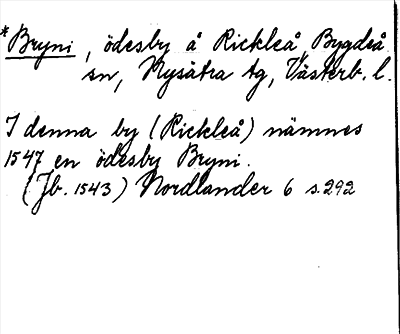 *Bryni, ödesby å Rickleå, Bygdeå
sn, Nysätra tg, Västerb. l.
I denna by (Rickleå) nämnes
1547 en ödesby Bryni.
(Jb. 1543) Nordlander 6 s. 292